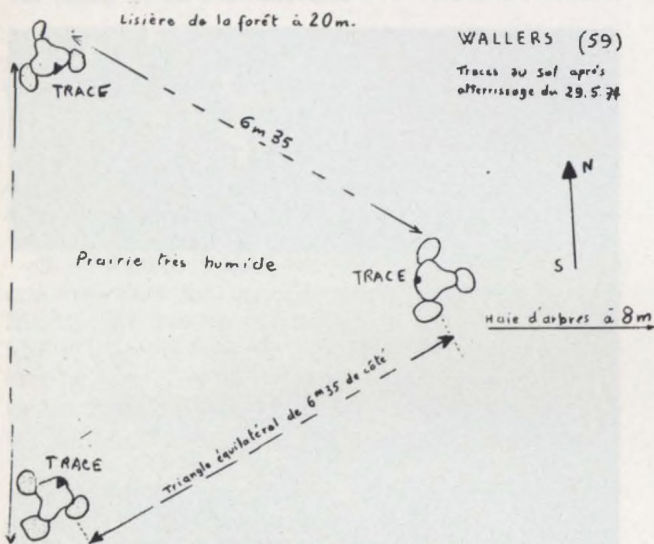 Lisière de la forêt à 20m.
WALLERS (59)
Traces au sol après
atterrissage du 29.5.74
TRACE
6m35
N
S
Prairie très humide
TRACE
Haie d'arbres à 8m
Triangle équilatéral de 6m35 de côté
TRACE